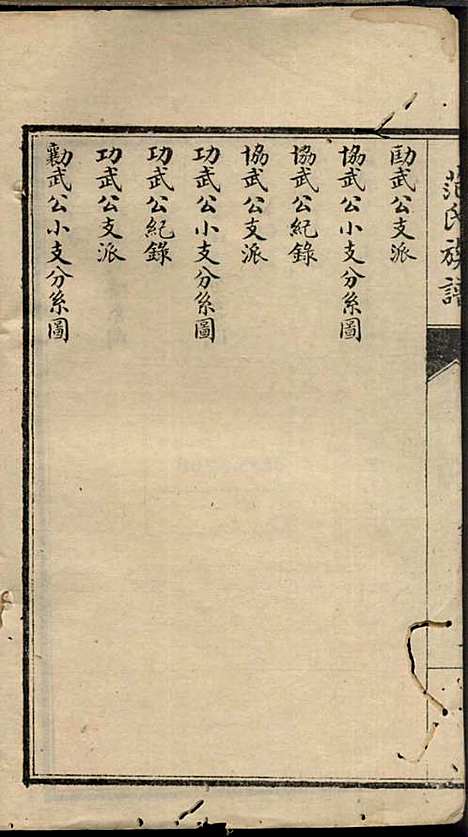 范氏族譜
勛武公支派
協武公小支分系圖
協武公紀錄
協武公支派
功武公小支分系圖
功武公紀錄
功武公支派
勷武公小支分系圖